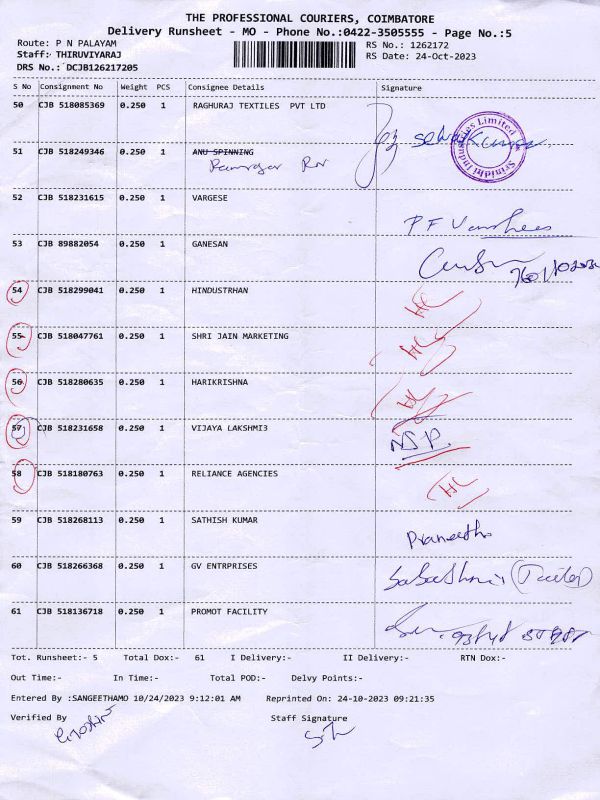 THE PROFESSIONAL COURIERS, COIMBATORE
Delivery Runsheet - MO - Phone No.:0422-3505555 - Page No.:5
Route: P N PALAYAM
Staff: THIRUVIYARAJ
DRS No.: DCJB126217205
RS No.: 1262172
RS Date: 24-Oct-2023
S No Consignment No Weight PCS Consignee Details Signature
50 CJB 518085369 0.250 1 RAGHURAJ TEXTILES PVT LTD
Srinidhi Industries Limited
51 CJB 518249346 0.250 1 ANU SPINNING
52 CJB 518231615 0.250 1 VARGESE
53 CJB 89882054 0.250 1 GANESAN
54 CJB 518299041 0.250 1 HINDUSTRHAN HC
55 CJB 518047761 0.250 1 SHRI JAIN MARKETING HC
56 CJB 518280635 0.250 1 HARIKRISHNA HC
57 CJB 518231658 0.250 1 VIJAYA LAKSHMI3 NSP.
58 CJB 518180763 0.250 1 RELIANCE AGENCIES HC
59 CJB 518268113 0.250 1 SATHISH KUMAR Praneetha
60 CJB 518266368 0.250 1 GV ENTRPRISES
61 CJB 518136718 0.250 1 PROMOT FACILITY
Tot. Runsheet:- 5 Total Dox:- 61 I Delivery:- II Delivery:- RTN Dox:-
Out Time:- In Time:- Total POD:- Delvy Points:-
Entered By :SANGEETHAMO 10/24/2023 9:12:01 AM Reprinted On: 24-10-2023 09:21:35
Verified By Staff Signature